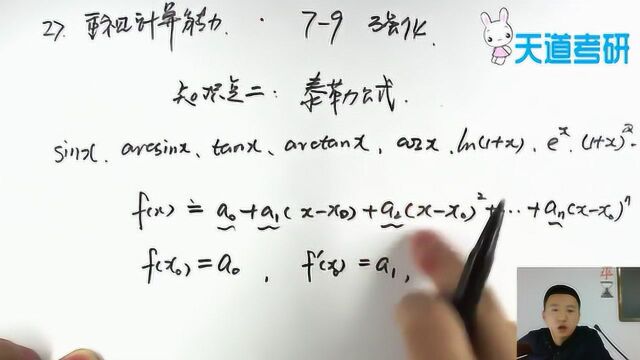 27. 重视计算能力. · 7-9 强化.
天道考研
知识点二: 泰勒公式.
sinx、arcsinx、tanx、arctanx, cosx, ln(1+x), e^x, (1+x)^α.
f(x) = a₀+a₁(x-x₀)+a₂(x-x₀)²+…+aₙ(x-x₀)ⁿ
f(x₀)=a₀, f'(x₀)=a₁,